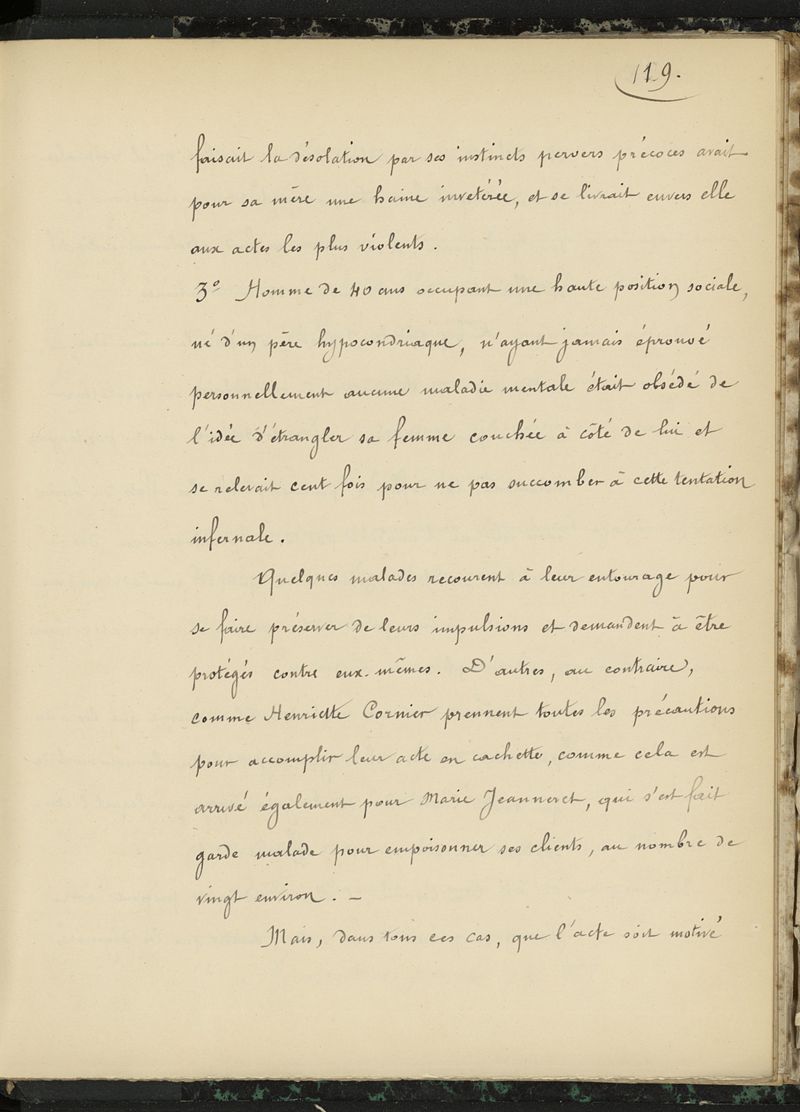 119.
faisait la désolation par ses instincts pervers précoces avait
pour sa mère une haine invétérée, et se livrait envers elle
aux actes les plus violents.
3º Homme de 40 ans occupant une haute position sociale,
né d'un père hypocondriaque, n'ayant jamais éprouvé
personnellement aucune maladie mentale était obsédé de
l'idée d'étrangler sa femme couchée à côté de lui et
se relevait cent fois pour ne pas succomber à cette tentation
infernale.
Quelques malades recourent à leur entourage pour
se faire préserver de leurs impulsions et demandent à être
protégés contre eux-mêmes. D'autres, au contraire,
comme Henriette Cornier prennent toutes les précautions
pour accomplir leur acte en cachette, comme cela est
arrivé également pour Marie Jeanneret, qui s'est fait
garde malade pour empoisonner ses clients, au nombre de
vingt environ. —
Mais, dans tous ces cas, que l'acte soit motivé